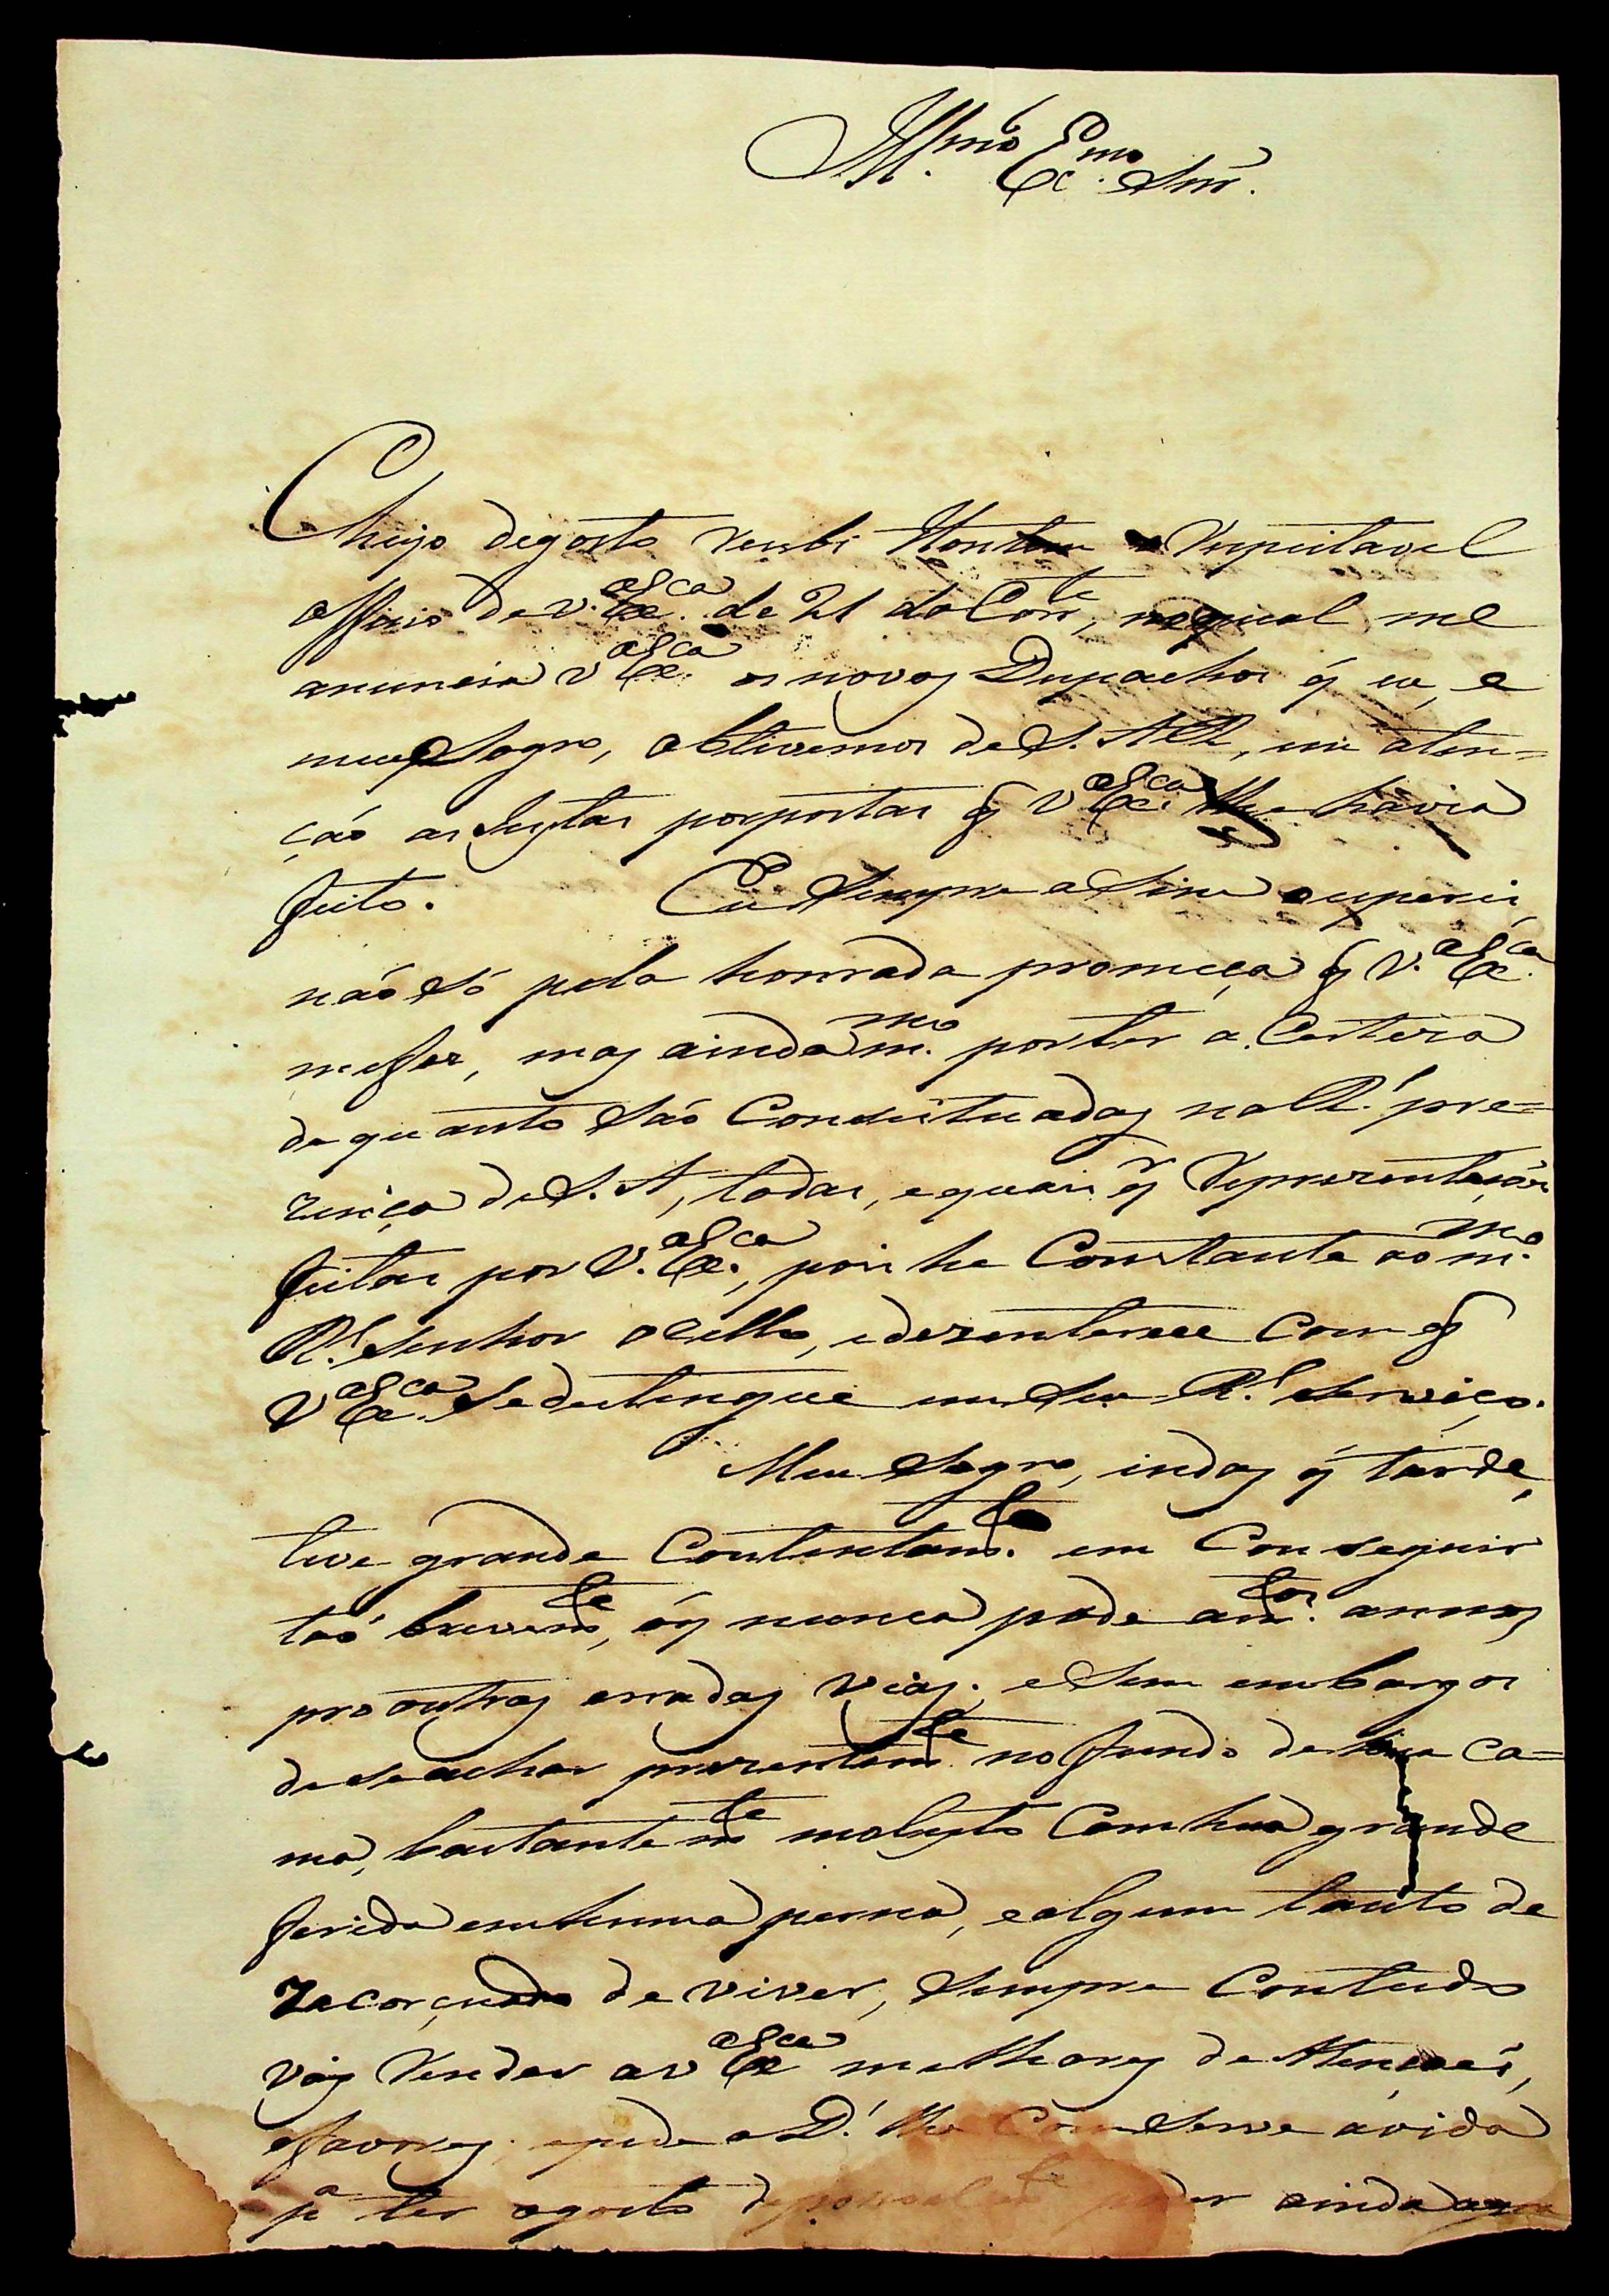 Ill.mo Ex.mo Snr.
Chejo de gosto recebi Hontem o Respeitavel
officio de V. Ex.ca de 21 do Corr.te, no qual me
anuncia V Ex.ca os novos Despachos q̃ eu, e
meu Sogro, obtivemos de S. A R, em aten=
ção as Justas propostas q̃ V Ex.ca lhe havia
feito. Eu Sempre asim o esperei,
não Só pela honrada promeça q̃ V. Ex.ca
me fes, mas ainda m.mo por ter a Certeza
de quanto São Conceituadas na R.l pre=
zença de S. A, todas, e quais q̃r Reprezentações
feitas por V. Ex.ca, pois he Constante ao m.mo
R.l Senhor o Zello, e dezenterece Com q̃
V Ex.ca Se destingue em Seu R.l Serviço.
Meu Sogro, indas q̃ tarde,
teve grande Contentam.to em Conseguir
tão brevem.te, o q̃ nunca pode an.tos annos
pro outras erradas vias; e Sem embargos
de Se achar prezentem.te no fundo de húa ca=
ma, bastantem.te molesto Com húa grande
ferida em huma perna, e algum tanto de
zacorçuado de viver, Sempre Contudo
vay Render a V Ex.ca melhores de Atenções,
e favores; e pede a D.s lhe Comserve a vida
p.a ter o gosto de pessoalm.te ainda